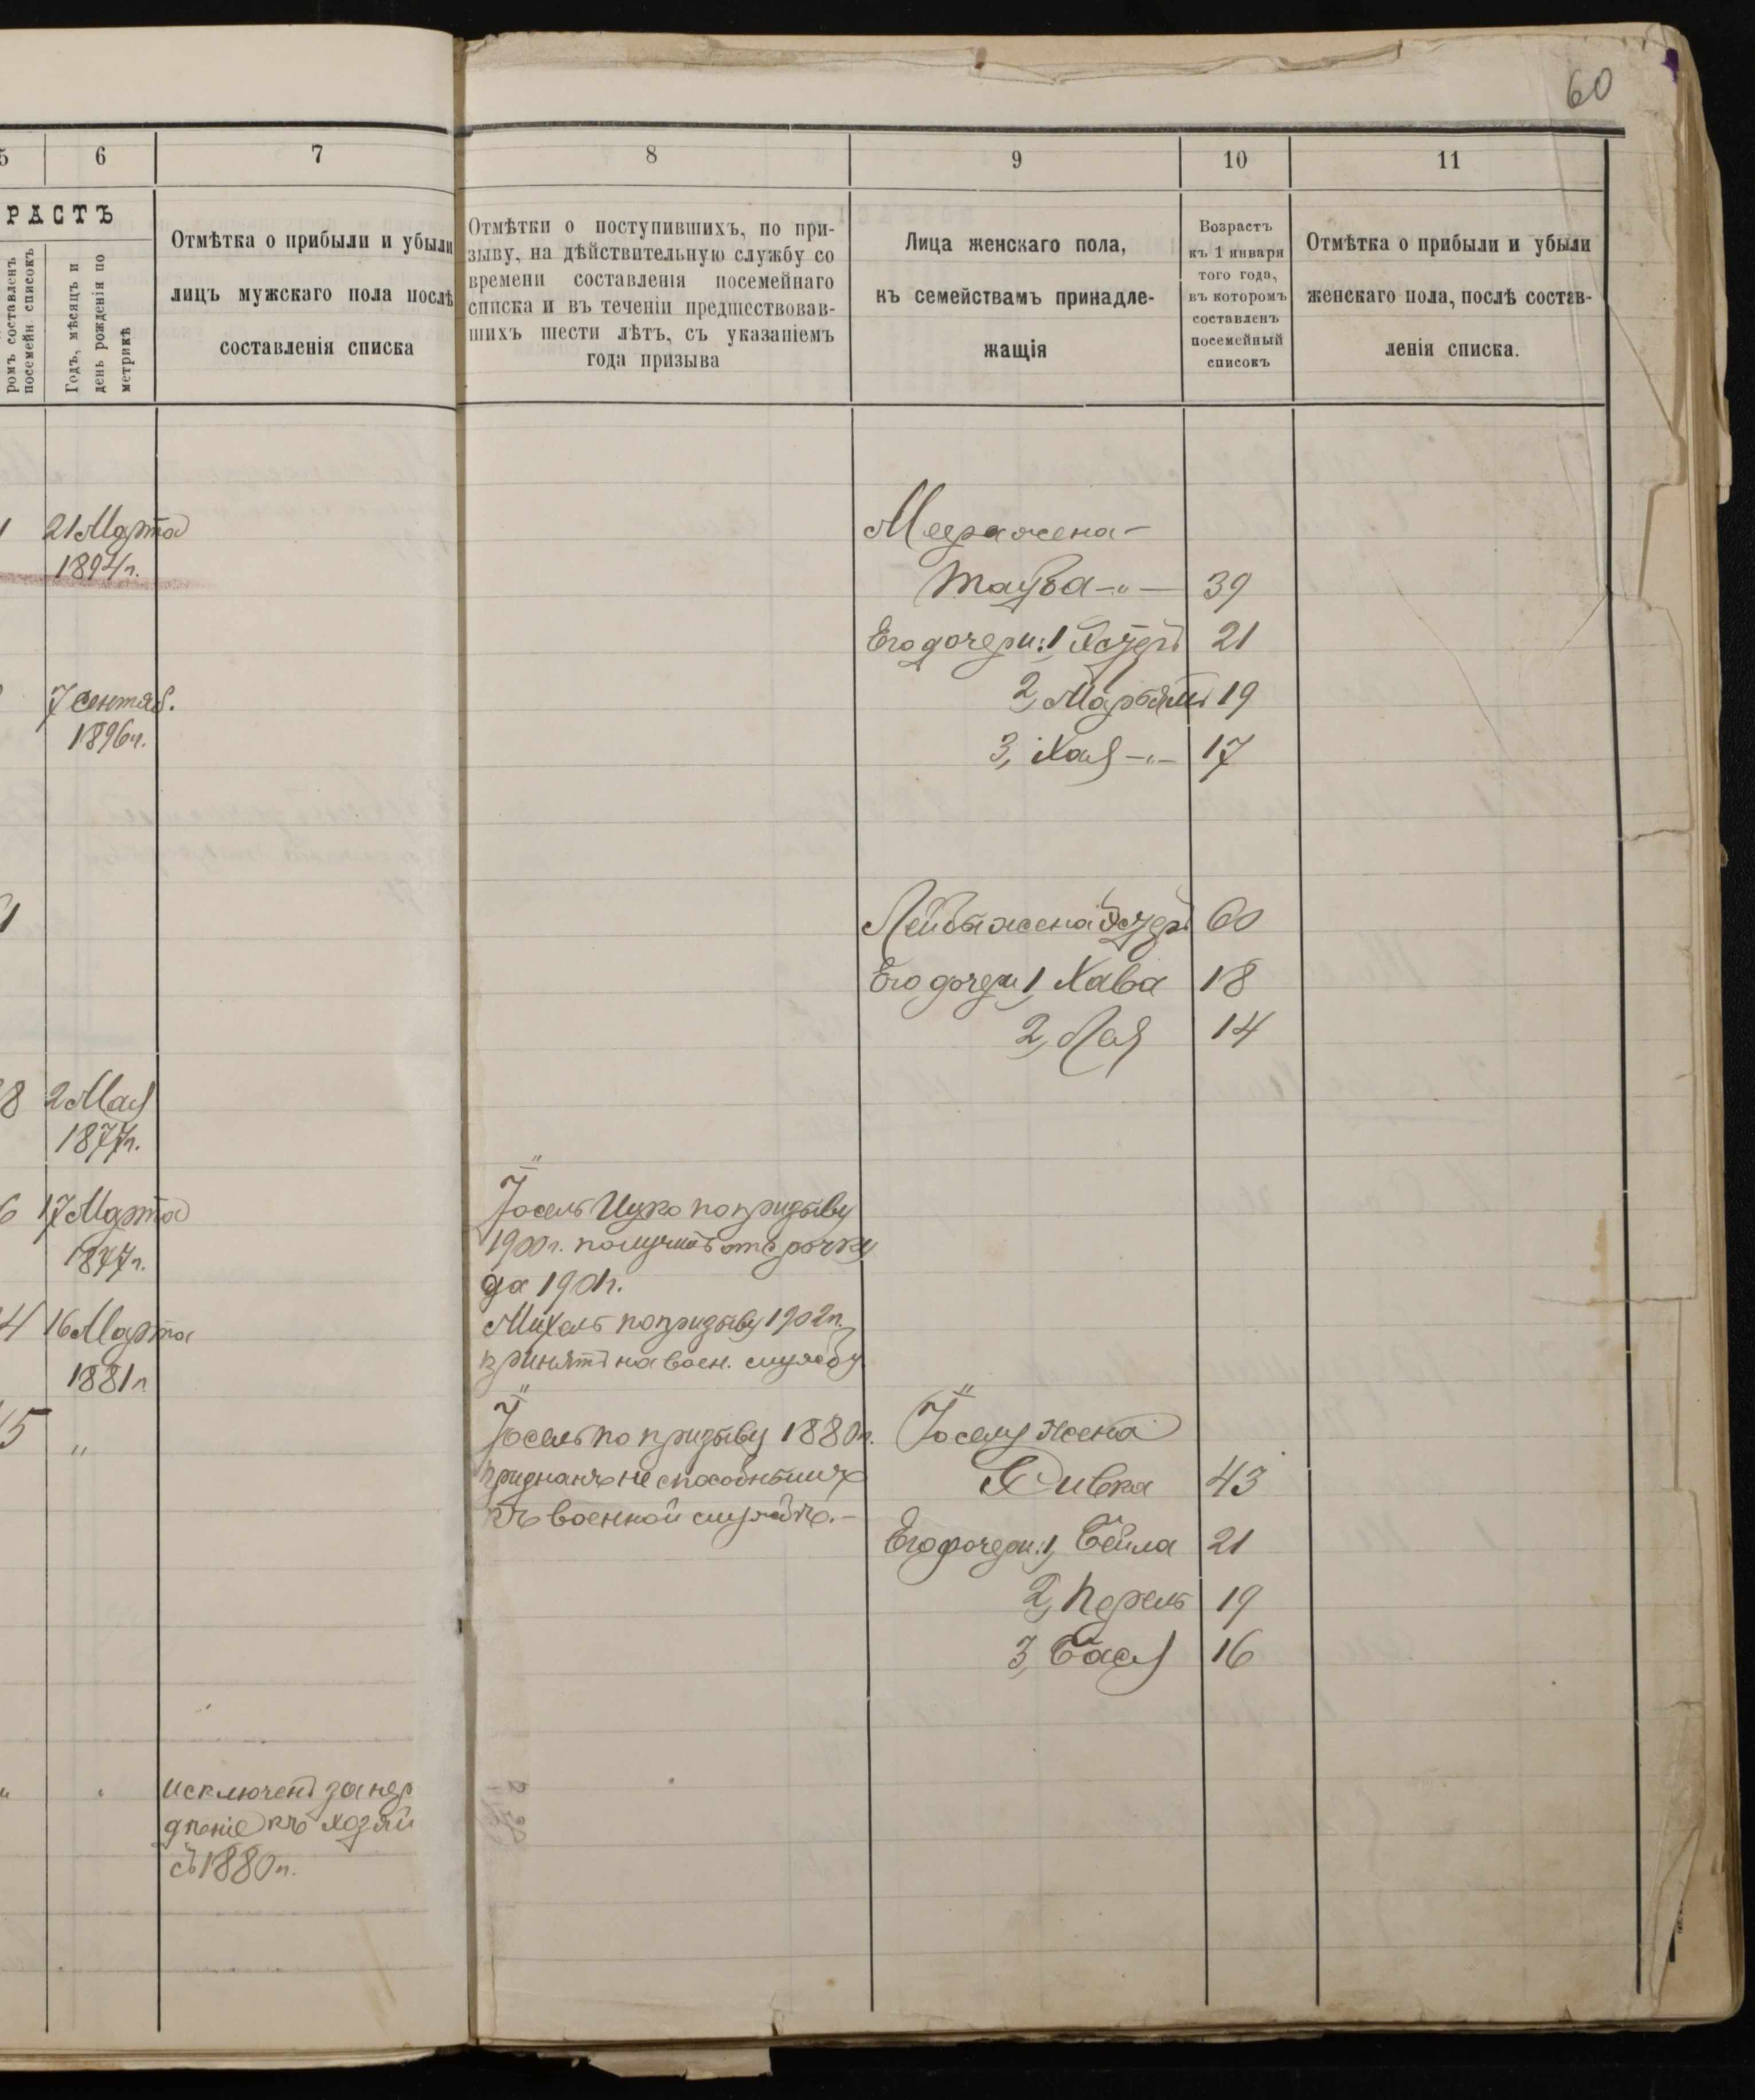 60
5 6 7 8 9 10 11
РАСТЪ
ромъ составленъ
посемейн списокъ
Годъ, мѣсяцъ и
день рожденія по
метрикѣ
Отмѣтка о прибыли и убыли
лицъ мужскаго пола послѣ
составленія списка
Отмѣтки о поступившихъ, по при-
зыву, на дѣйствительную службу со
времени составленія посемейнаго
списка и въ теченіи предшествовав-
шихъ шести лѣтъ, съ указаніемъ
года призыва
Лица женскаго пола,
къ семействамъ принадле-
жащія
Возрастъ
къ 1 января
того года,
въ которомъ
составленъ
посемейный
списокъ
Отмѣтка о прибыли и убыли
женскаго пола, послѣ состав-
ленія списка.
1 21 Марта
1894 г.
Меера жена —
Тауба —„— 39
Его дочери: 1, Эстеръ 21
2, Марьямъ 19
7 Сентяб.
1896 г.
3, Хая —„— 17
1
Лейбы жена Эстеръ 60
Его дочери 1, Хава 18
2, Лая 14
8 2 Мая
1877 г.
6 17 Марта
1877 г.
Іосель Ицко по призыву
1900 г. получилъ отсрочку
до 1901 г.
4 16 Марта
1881 г
Михель по призыву 1902 г.
принятъ на воен. службу
5 „
Іосель по призыву 1880 г.
признанъ неспособнымъ
къ военной службѣ. —
Іоселя жена
Ривка 43
Его дочери: 1, Бейла 21
2, Перель 19
3, Бася 16
„ „ исключенъ за нер
дѣніе къ хозяй
съ 1880 г.